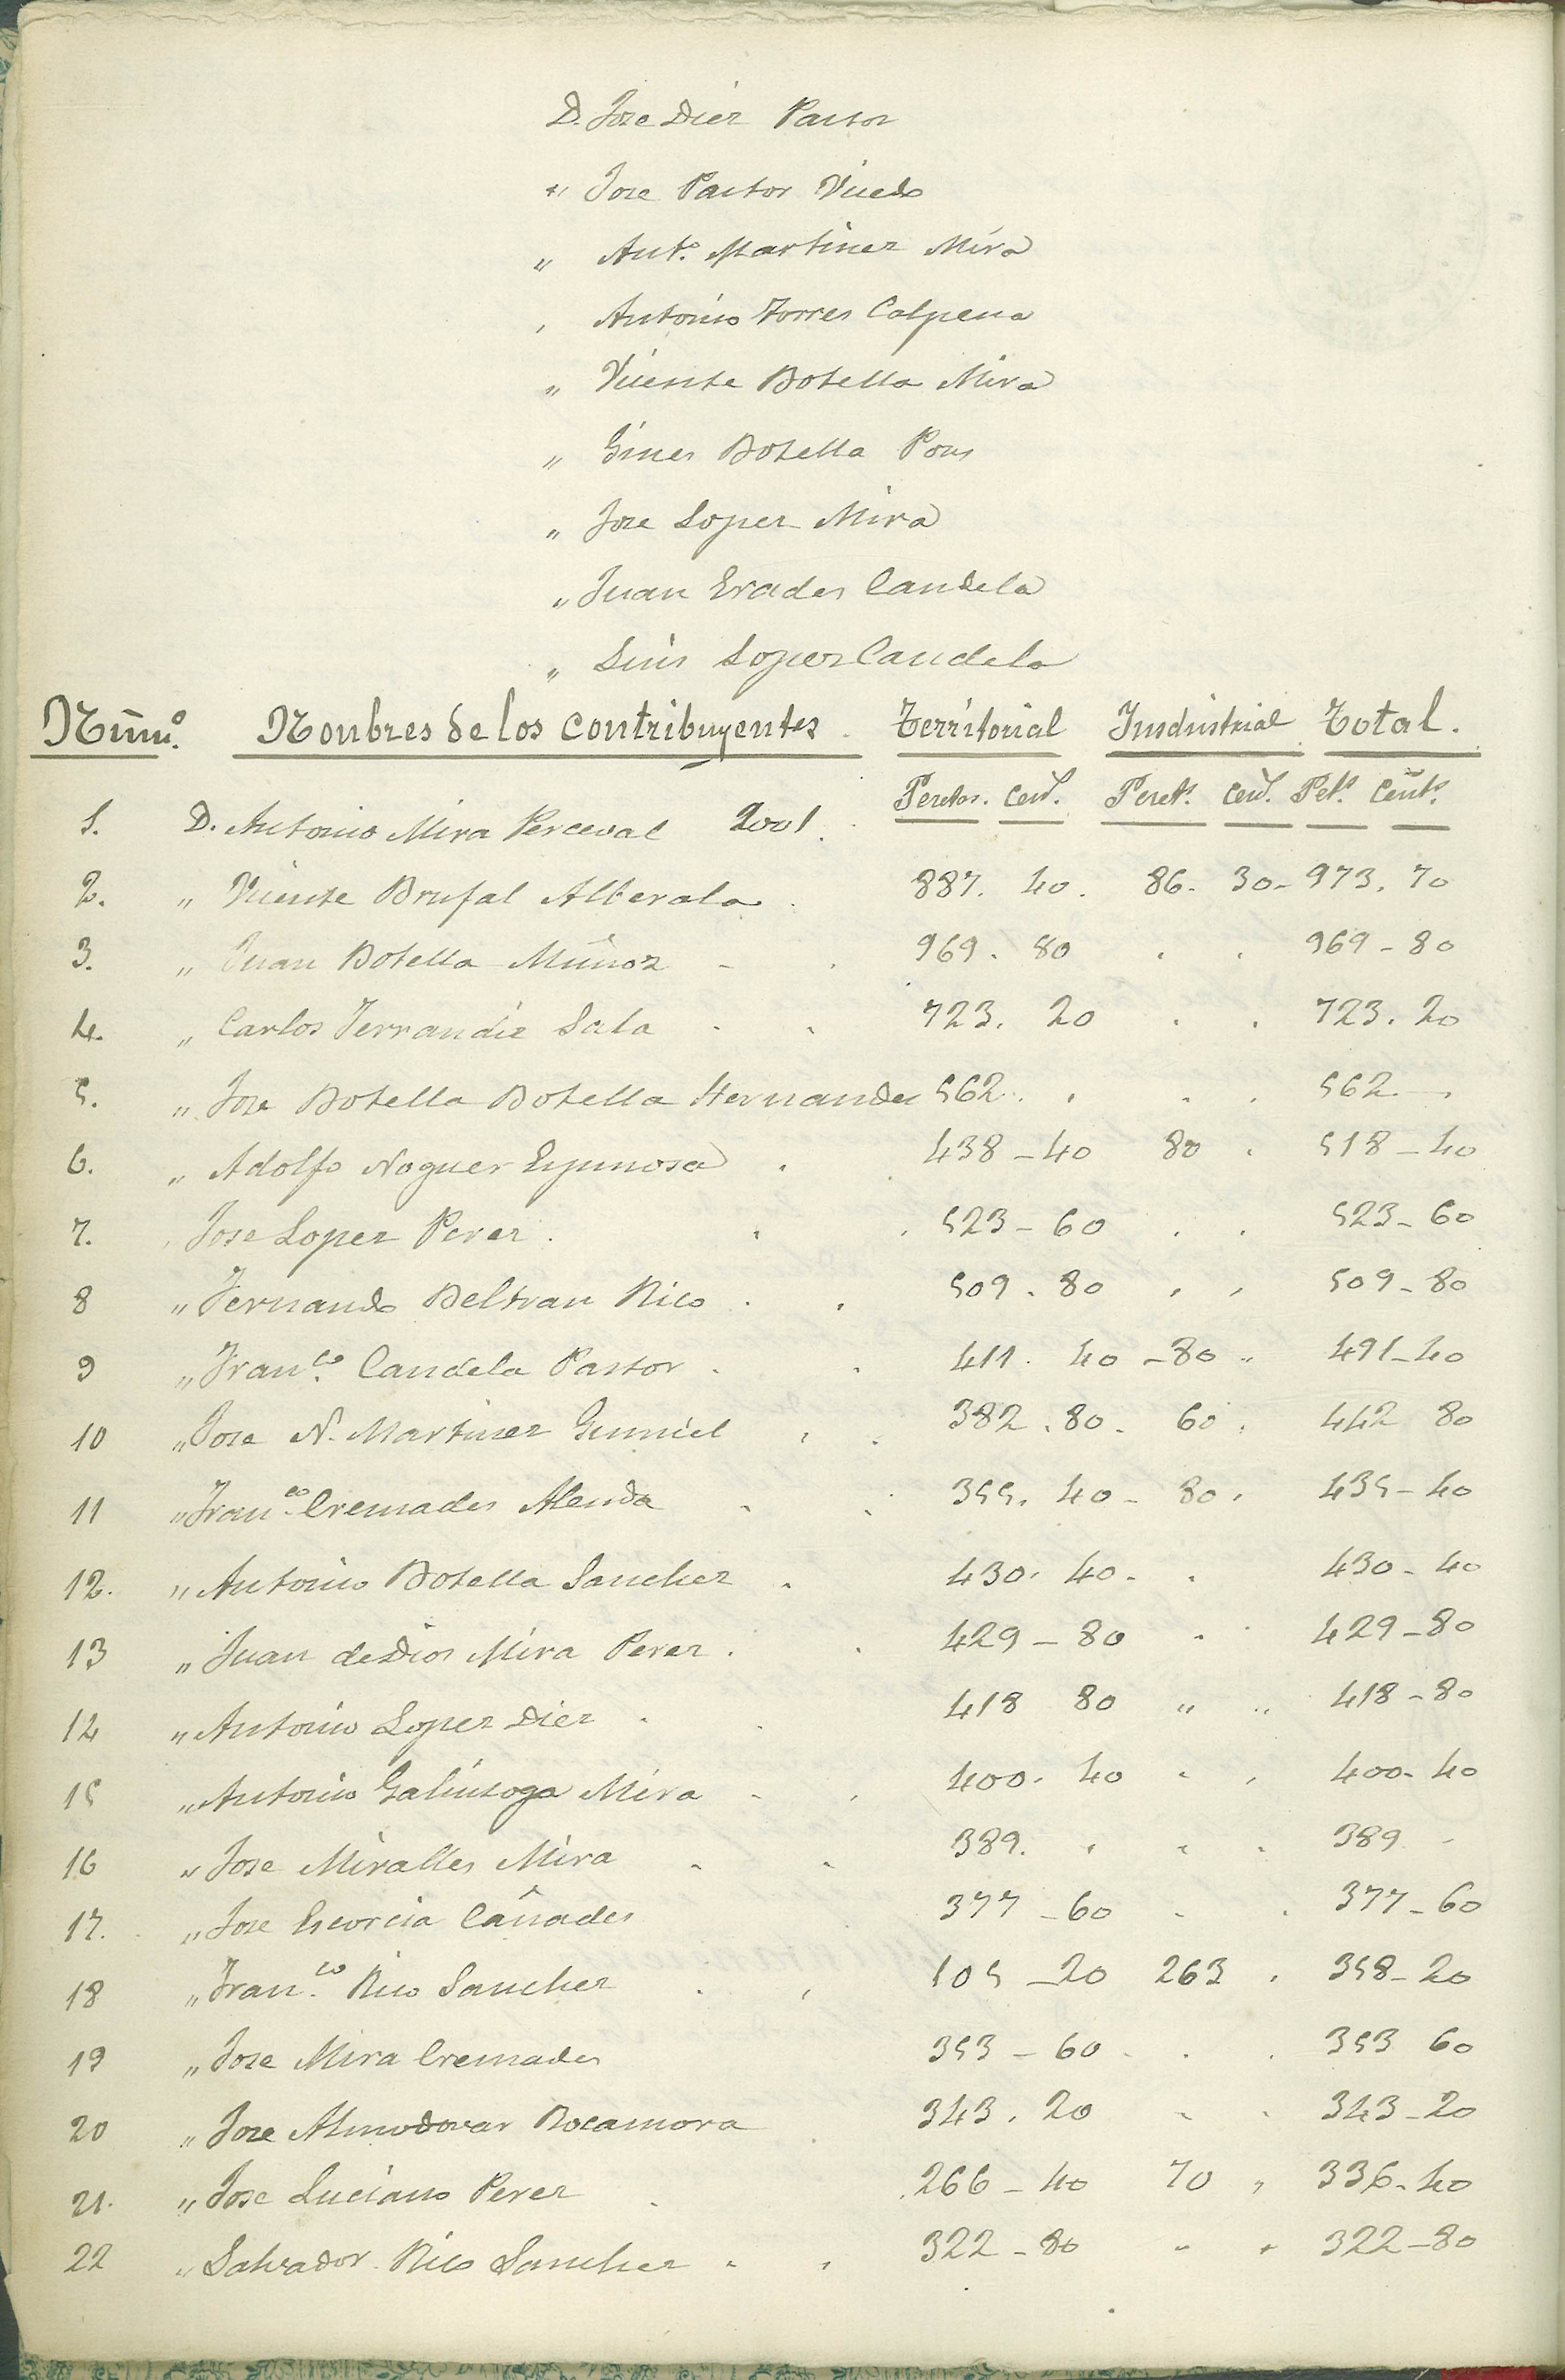 D. Jose Diez Pastor
" Jose Pastor Vicedo
" Ant.º Martinez Mira
, Antonio Torres Calpena
" Vicente Botella Mira
" Gines Botella Pons
" Jose Lopez Mira
" Juan Erades Candela
" Luis Lopez Candela
Núm.º Nonbres de los contribuyentes. Territorial Imdustrial Total.
Pesetas. cent. Peset.s cent. Pet.s cent.s
1. D. Antonio Mira Perceval 2001.
2. " Vicente Brufal Alberola 887. 40. 86. 30 - 973. 70
3. " Juan Botella Muñoz - 969. 80 969 - 80
4. " Carlos Ferrandiz Sala 723. 20 723. 20
5. " Jose Botella Botella Hernandez 562. 562 -
6. " Adolfo Noguer Espinosa 438 - 40 80 518 - 40
7. Jose Lopez Perez. 523 - 60 523 - 60
8 " Fernando Beltran Rico 509. 80 509 - 80
9 " Fran.co Candela Pastor 411. 40 - 80 " 491 - 40
10 " Jose N. Martinez Gumiel 382. 80. 60. 442 80
11 " Fran.co Cremades Alenda 355. 40 - 80. 435 - 40
12. " Antonio Botella Sanchez 430. 40 - 430 - 40
13 " Juan de Dios Mira Perez. 429 - 80 429 - 80
14 " Antonio Lopez Diez 418 80 " " 418 - 80
15 " Antonio Galinsoga Mira 400. 40 400 - 40
16 " Jose Miralles Mira 389. 389
17. " Jose Escorcia Cañades 377 - 60 377 - 60
18 " Fran.co Rico Sanchez 105 - 20 263 358 - 20
19 " Jose Mira Cremades 353 - 60 353 60
20 " Jose Almodovar Rocamora 343. 20 343 - 20
21. " Jose Luciano Perez 266 - 40 70 " 336 - 40
22 " Salvador Rico Sanchez 322 - 80 322 - 80